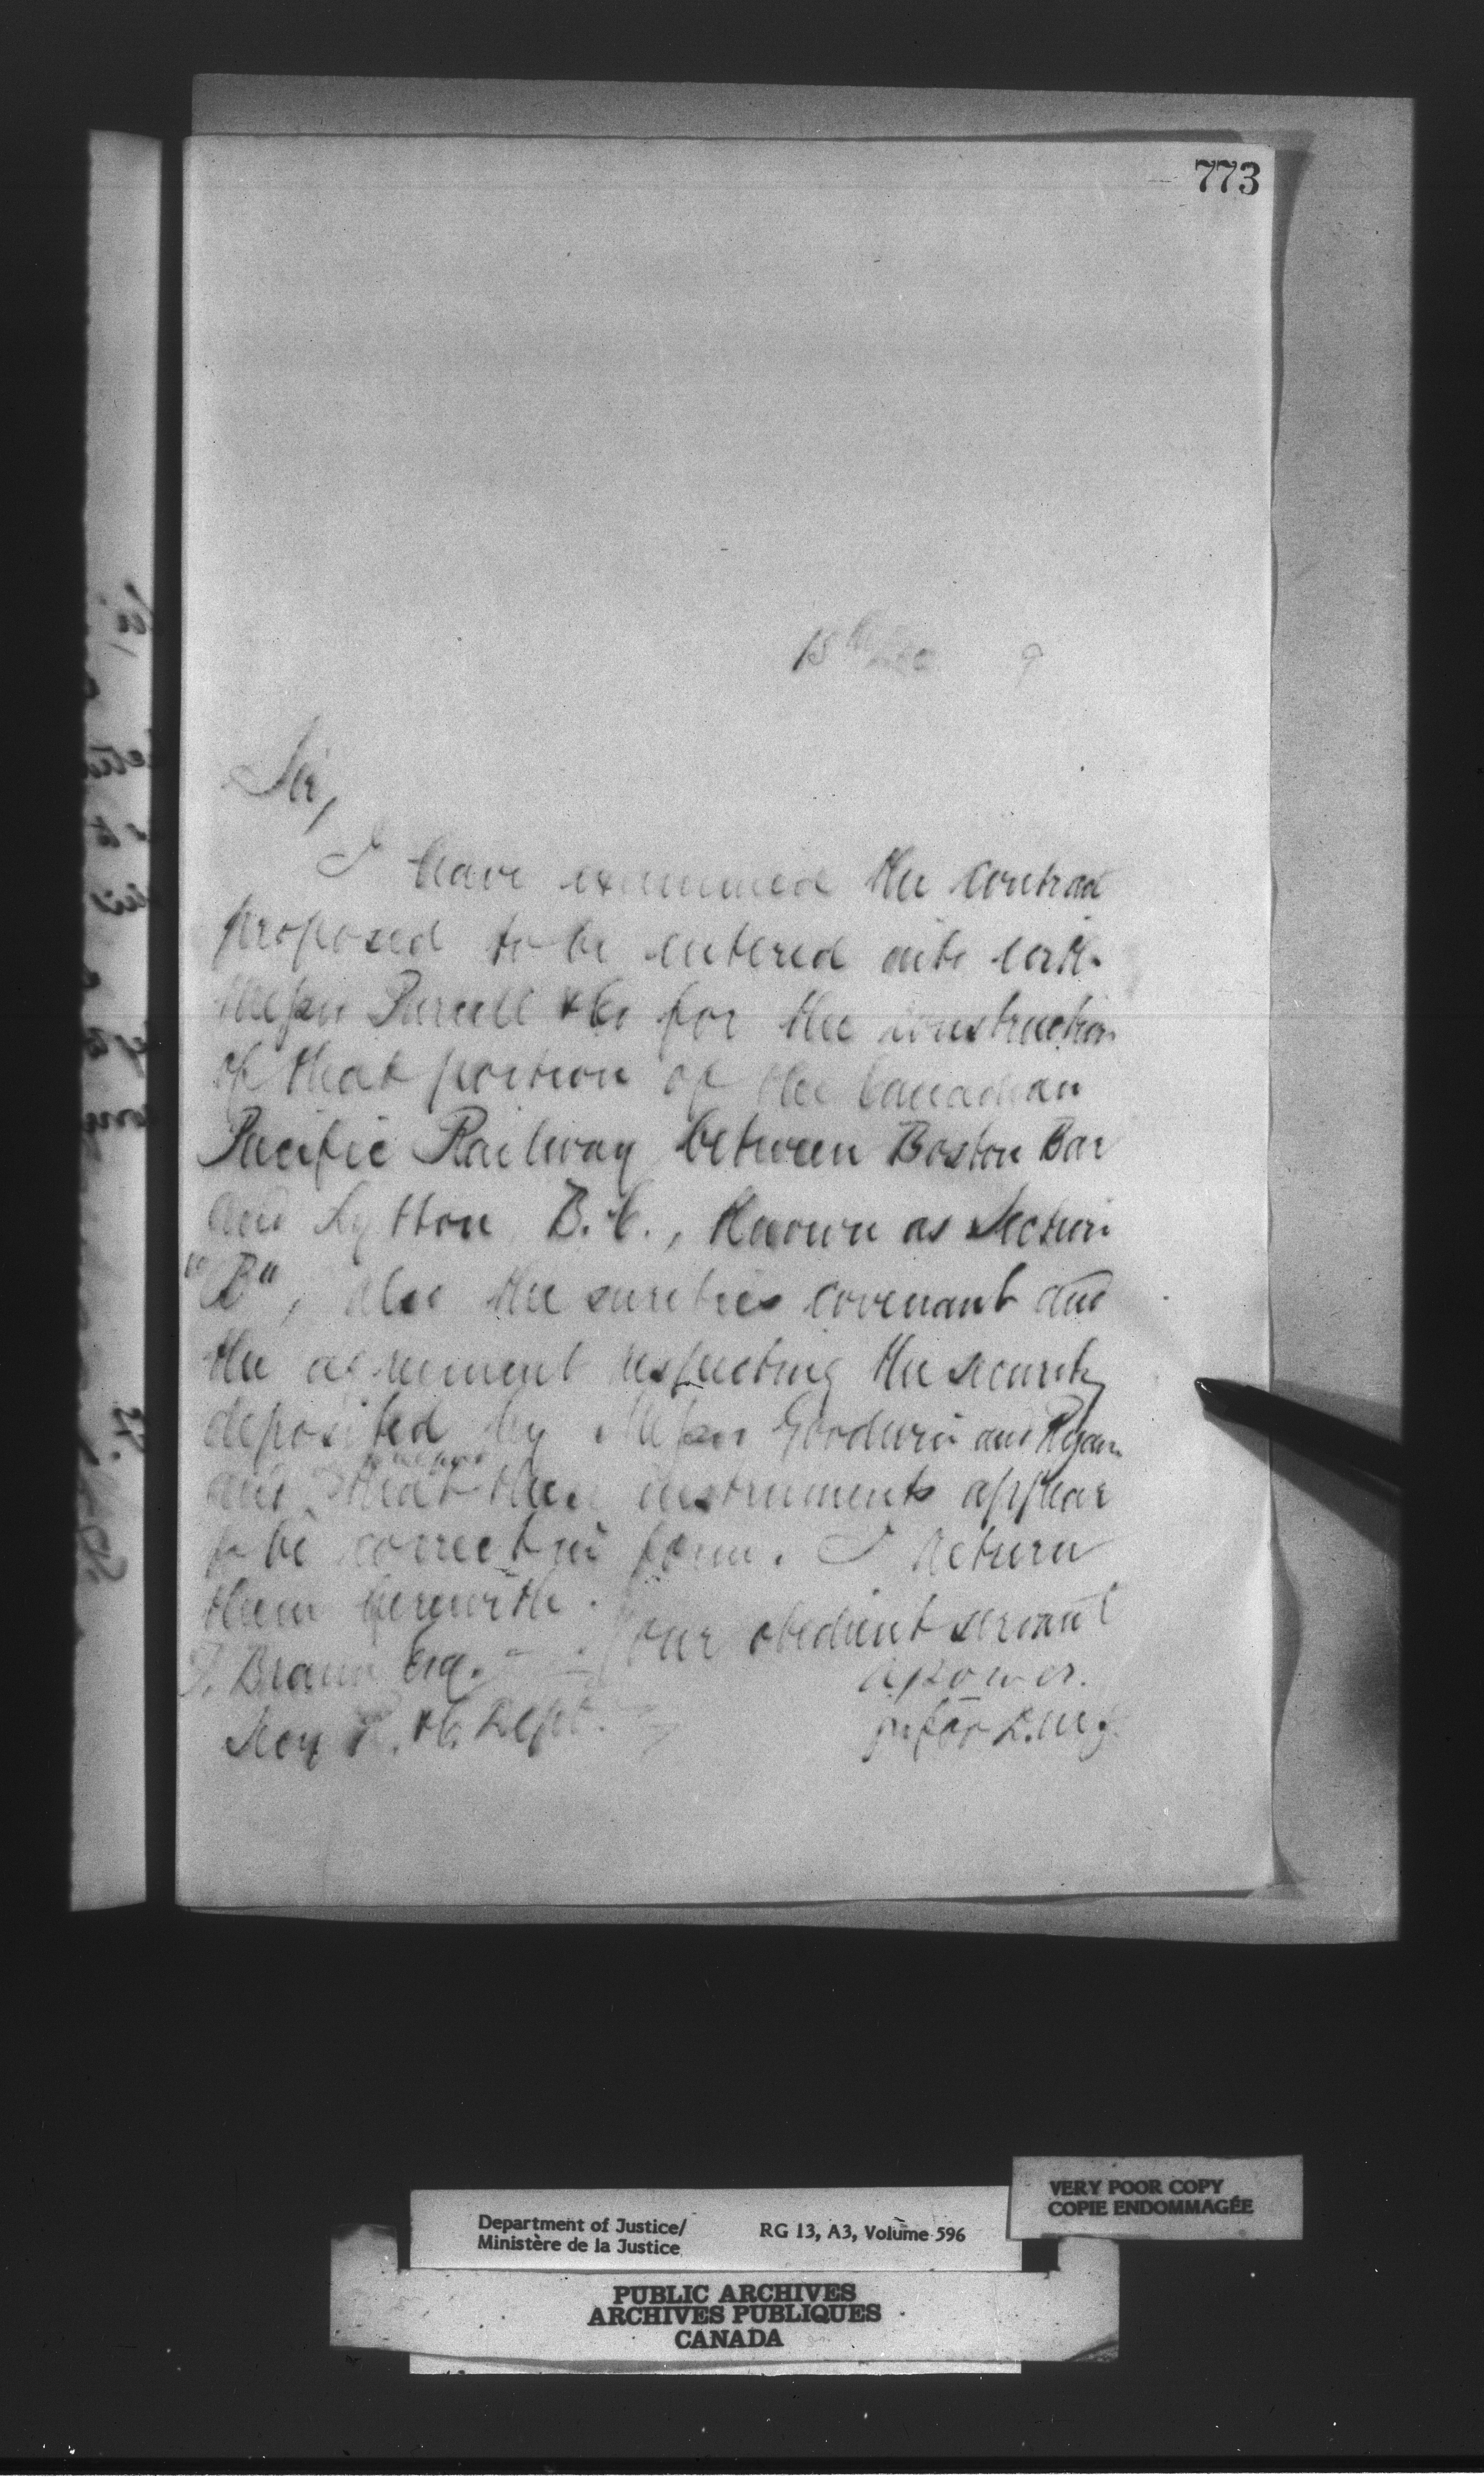 773
15th Dec 9
Sir,
I have examined the contract
proposed to be entered into with
Messrs Purcell & Co for the construction
of that portion of the Canadian
Pacific Railway between Boston Bar
and Lytton B.C., known as Section
"B", also the sureties covenant and
the agreement respecting the security
deposited by Messrs Goodwin and Ryan
and that these instruments appear
to be correct in form. I return
them herewith.
Your obedient servant
F. Braun Esq.
A Power.
Secy R. & C. Dept.
for D.M.J.
VERY POOR COPY
COPIE ENDOMMAGÉE
Department of Justice/
Ministère de la Justice
RG 13, A3, Volume 596
PUBLIC ARCHIVES
ARCHIVES PUBLIQUES
CANADA